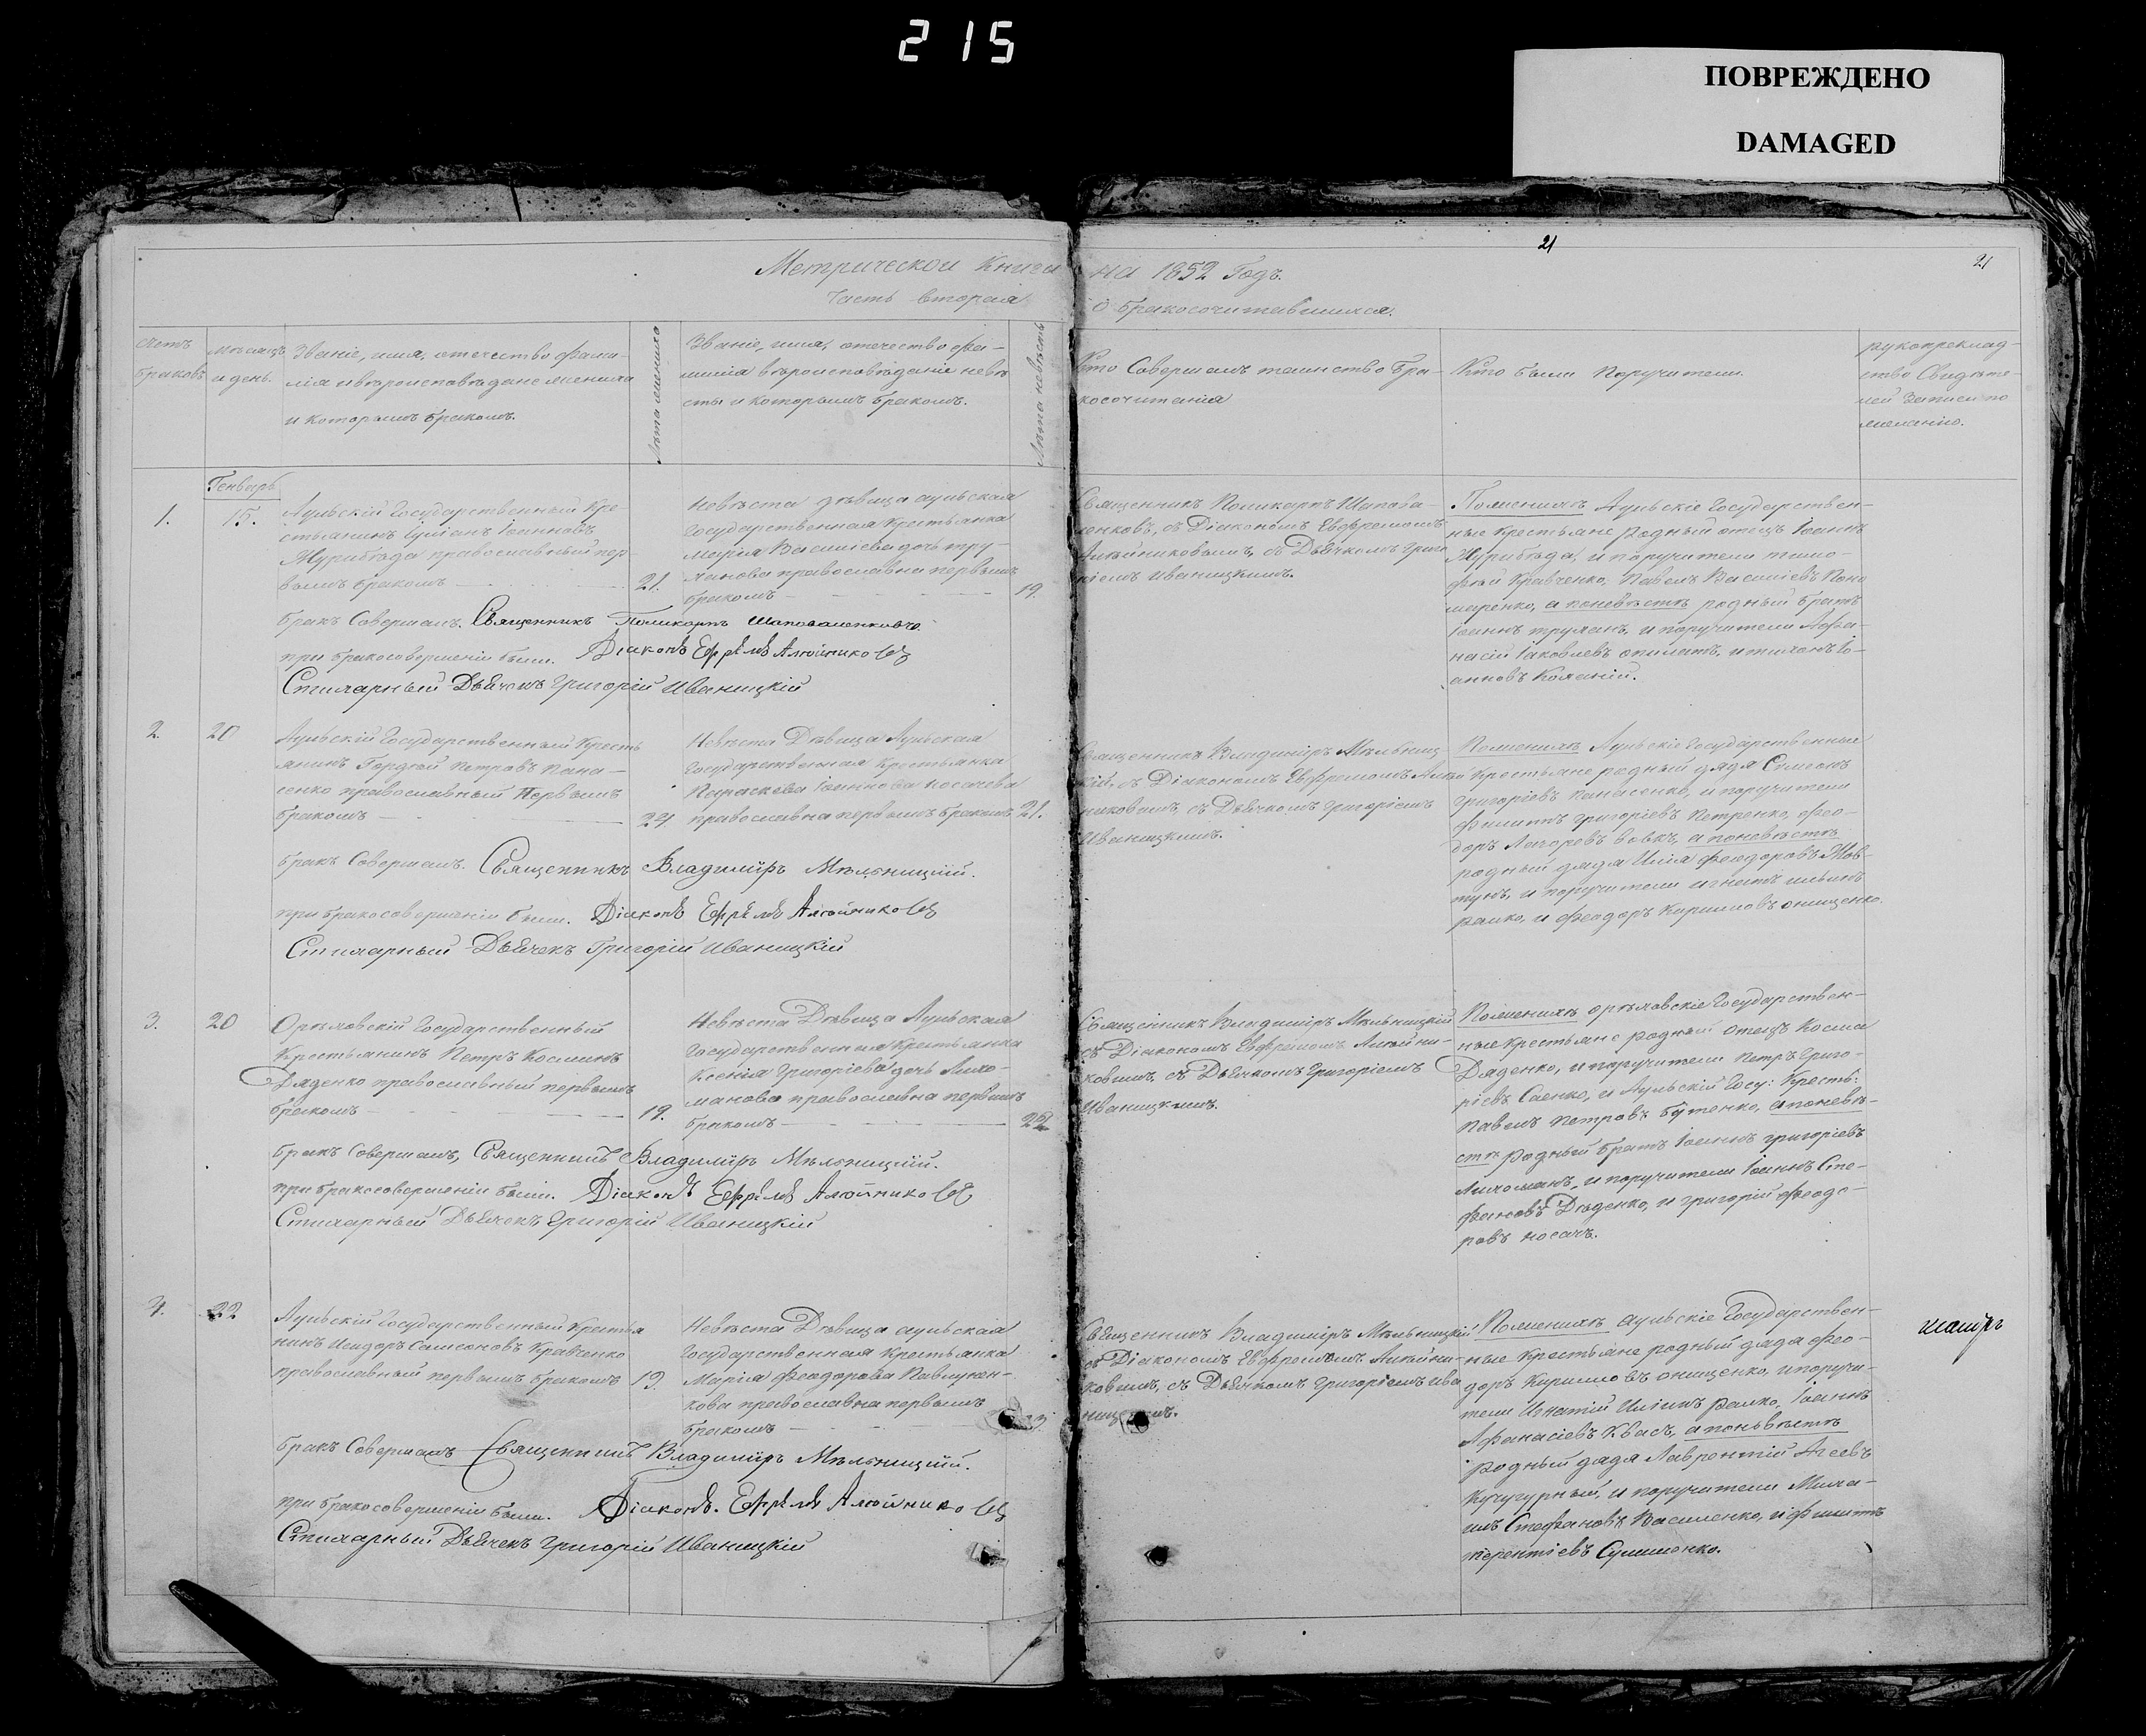 215
ПОВРЕЖДЕНО
DAMAGED
21
21
Метрической Книги на 1852 Годъ.
Часть вторая о бракосочитавшихся.
Счетъ браковъ
мѣсяцъ и день.
Званіе, имя, отечество фами-
лія и вѣроисповѣданіе жениха
и которымъ бракомъ.
Лѣта жениха
Званіе, имя, отечество фа-
милія вѣроисповѣданіе невѣ
сты и которымъ бракомъ.
Лѣта невѣсты
Кто Совершалъ таинство бра-
косочитанія
Кто были Поручители.
рукоприклад-
ство Свидѣте-
лей Записи по
желанію.
Генварь
1.
15.
Аульскій Государственный Кре-
стьянинъ Іоанновъ
Журибѣда православный пер-
вымъ бракомъ
21.
Невѣста дѣвица аульская
Государственная Крестьянка
Марія Василіева дочь тру-
манова православна первымъ
бракомъ
19.
Священникъ Поликарпъ Шапова-
ленковъ, съ Діакономъ Евфремомъ
Алѣйниковымъ, съ Дьячкомъ Григо
ріемъ Иваницкимъ.
По женихѣ Аульскіе Государствен-
ные крестьяне родный отецъ Іоаннъ
Журибѣда, и поручители тимо-
фѣй Кравченко, Павелъ Василіевъ Поно
маренко, а по невѣстѣ родный братъ
Іоаннъ труманъ, и поручители Афа-
насій Іаковлевъ и тихонъ Іо-
анновъ
бракъ Совершалъ. Священникъ Поликарпъ Шаповаленковъ.
при бракосовершеніи были. Діаконъ Ефрѣмъ Алѣйниковъ
Стихарный Дьячекъ Григорій Иваницкій
2.
20
Аульскій Государственный Кресть
янинъ Гордѣй Петровъ Пана-
сенко православный Первымъ
бракомъ
Невѣста Дѣвица Аульская
Государственная Крестьянка
Параскева Іоаннова
православна первымъ бракомъ
21.
Священникъ Владиміръ Мѣльниц-
кій, съ Діакономъ Евфремомъ Алѣй
никовымъ, съ Дьячкомъ Григоріемъ
Иваницкимъ.
По женихѣ Аульскіе Государственные
Крестьяне родный дядя Симеонъ
Григоріевъ Панасенко, и поручители
Филиппъ Григоріевъ Петренко, фео-
доръ вовкъ, а по невѣстѣ
родный дядя Илія Феодоровъ Мов-
тунъ, и поручители игнатъ ильинъ
рамко, и феодоръ Кирилловъ онищенко.
бракъ Совершалъ. Священникъ Владиміръ Мѣльницкій.
при бракосовершеніи были. Діаконъ Ефрѣмъ Алѣйниковъ
Стихарный Дьячекъ Григорій Иваницкій
3.
20
Орѣловскій Государственный
Крестьянинъ Петръ Косминъ
Дяденко православный первымъ
бракомъ
19.
Невѣста Дѣвица Аульская
Государственная Крестьянка
Ксенія Григоріева дочь Лихо-
манова православна первымъ
бракомъ
22
Священникъ Владиміръ Мѣльницкій
съ Діакономъ Евфремомъ Алѣйни-
ковымъ, съ Дьячкомъ Григоріемъ
Иваницкимъ.
По женихѣ орѣловскіе Государствен-
ные Крестьяне родный отецъ Косма
Дяденко, и поручители Петръ Григо-
ріевъ Саенко, и Аульскій Госу: Кресть:
Павелъ Петровъ Бутенко, а по невѣ-
стѣ родный братъ Іоаннъ григоріевъ
Лихоманъ, и поручители Іоаннъ Сте-
фановъ Дяденко, и григорій феодо-
ровъ носачъ.
бракъ Совершалъ, Священникъ Владиміръ Мѣльницкій.
при бракосовершеніи были. Діаконъ Ефрѣмъ Алѣйниковъ
Стихарный Дьячекъ Григорій Иваницкій
4.
22
Аульскій Государственный Крестья
нинъ Исидоръ Самсоновъ Кравченко
православный первымъ бракомъ
19.
Невѣста Дѣвица аульская
Государственная Крестьянка
Марія Феодорова
кова православна первымъ
бракомъ
Священникъ Владиміръ Мѣльницкій
съ Діакономъ Евфремомъ Алѣйни-
ковымъ, съ Дьячкомъ Григоріемъ Ива
ницкимъ.
По женихѣ аульскіе Государствен-
ные Крестьяне родный дядя фео-
доръ Кирилловъ онищенко, и поручи-
тели Игнатій Иліинъ рамко, Іоаннъ
Афанасіевъ Квасъ, а по невѣстѣ
родный дядя Лаврентій Агеевъ
Кучугурный, и поручители Миха-
илъ Стефановъ Василенко, и филиппъ
терентіевъ Сулименко.
бракъ Совершалъ Священникъ Владиміръ Мѣльницкій.
при бракосовершеніи были. Діаконъ. Ефрѣмъ Алѣйниковъ
Стихарный Дьячекъ Григорій Иваницкій